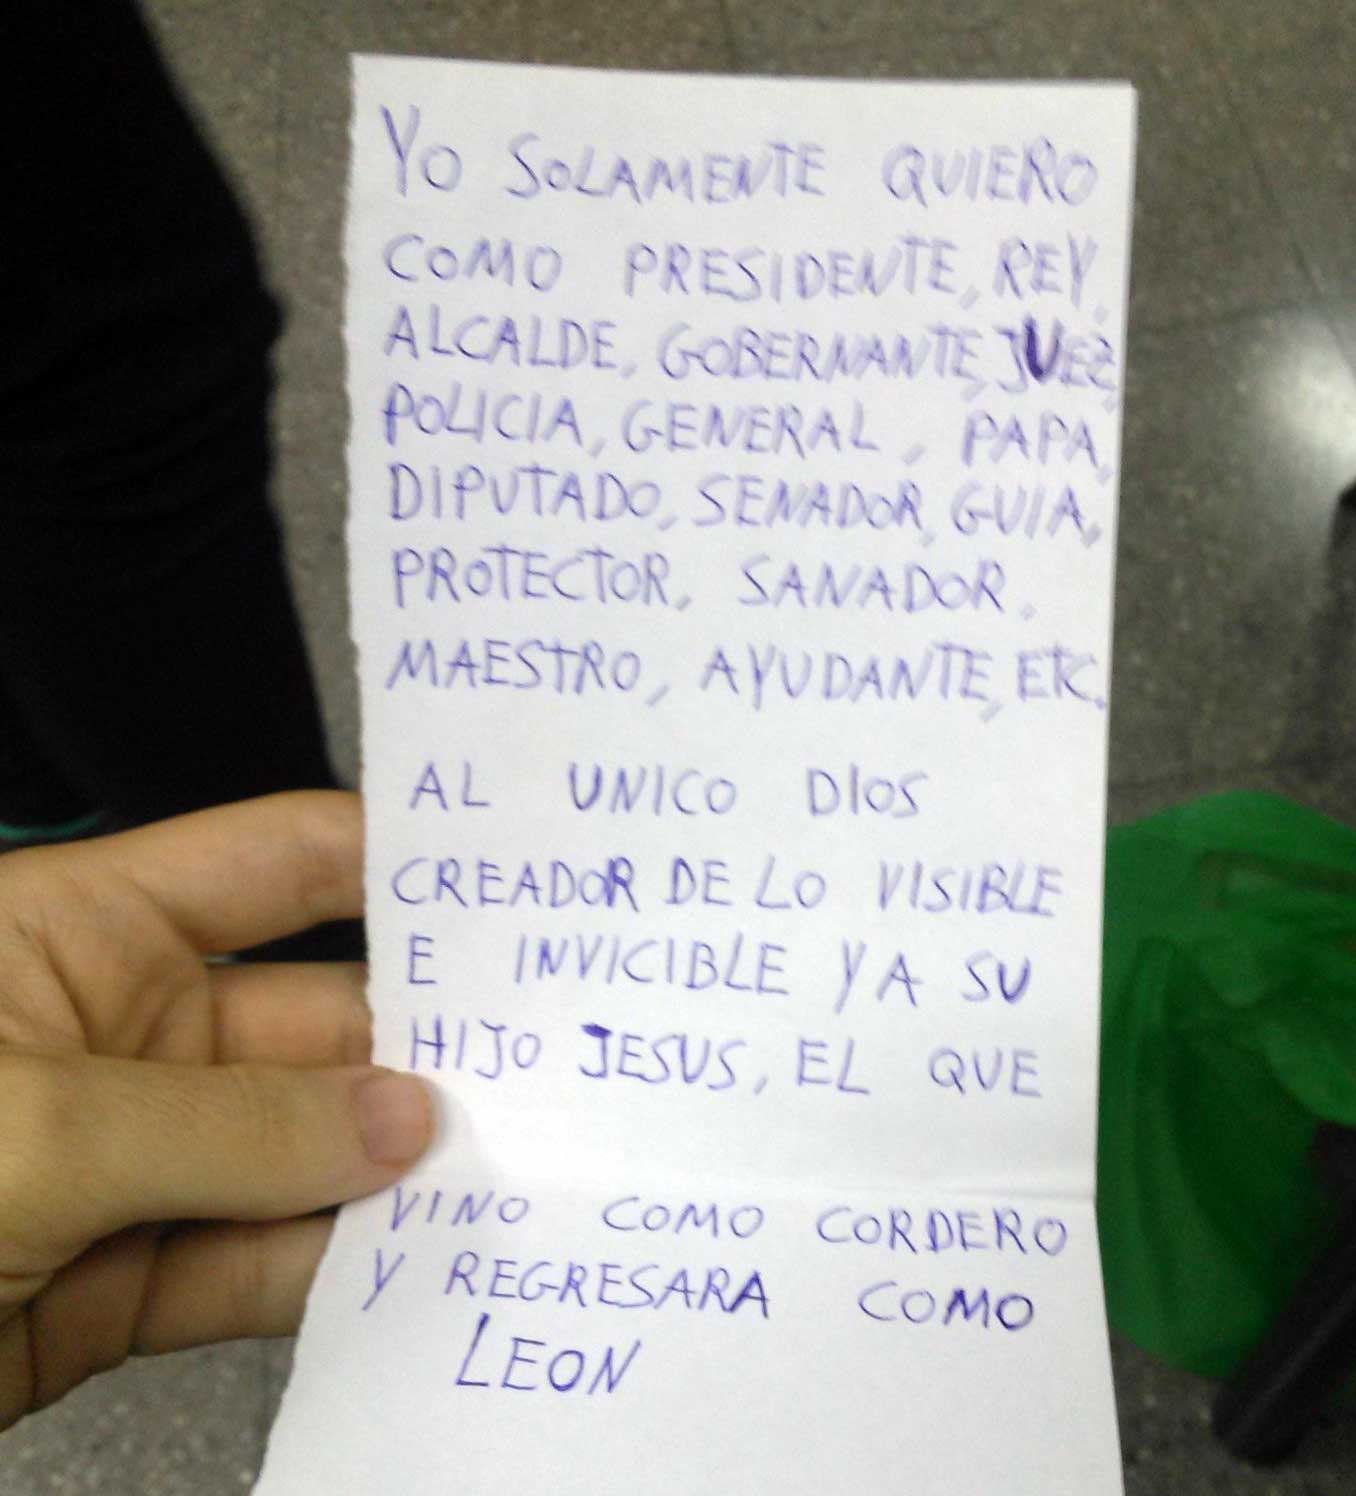 YO SOLAMENTE QUIERO
COMO PRESIDENTE, REY,
ALCALDE, GOBERNANTE, JUEZ,
POLICIA, GENERAL, PAPA,
DIPUTADO, SENADOR, GUIA,
PROTECTOR, SANADOR,
MAESTRO, AYUDANTE, ETC.
AL UNICO DIOS
CREADOR DE LO VISIBLE
E INVICIBLE Y A SU
HIJO JESUS, EL QUE
VINO COMO CORDERO
Y REGRESARA COMO
LEON